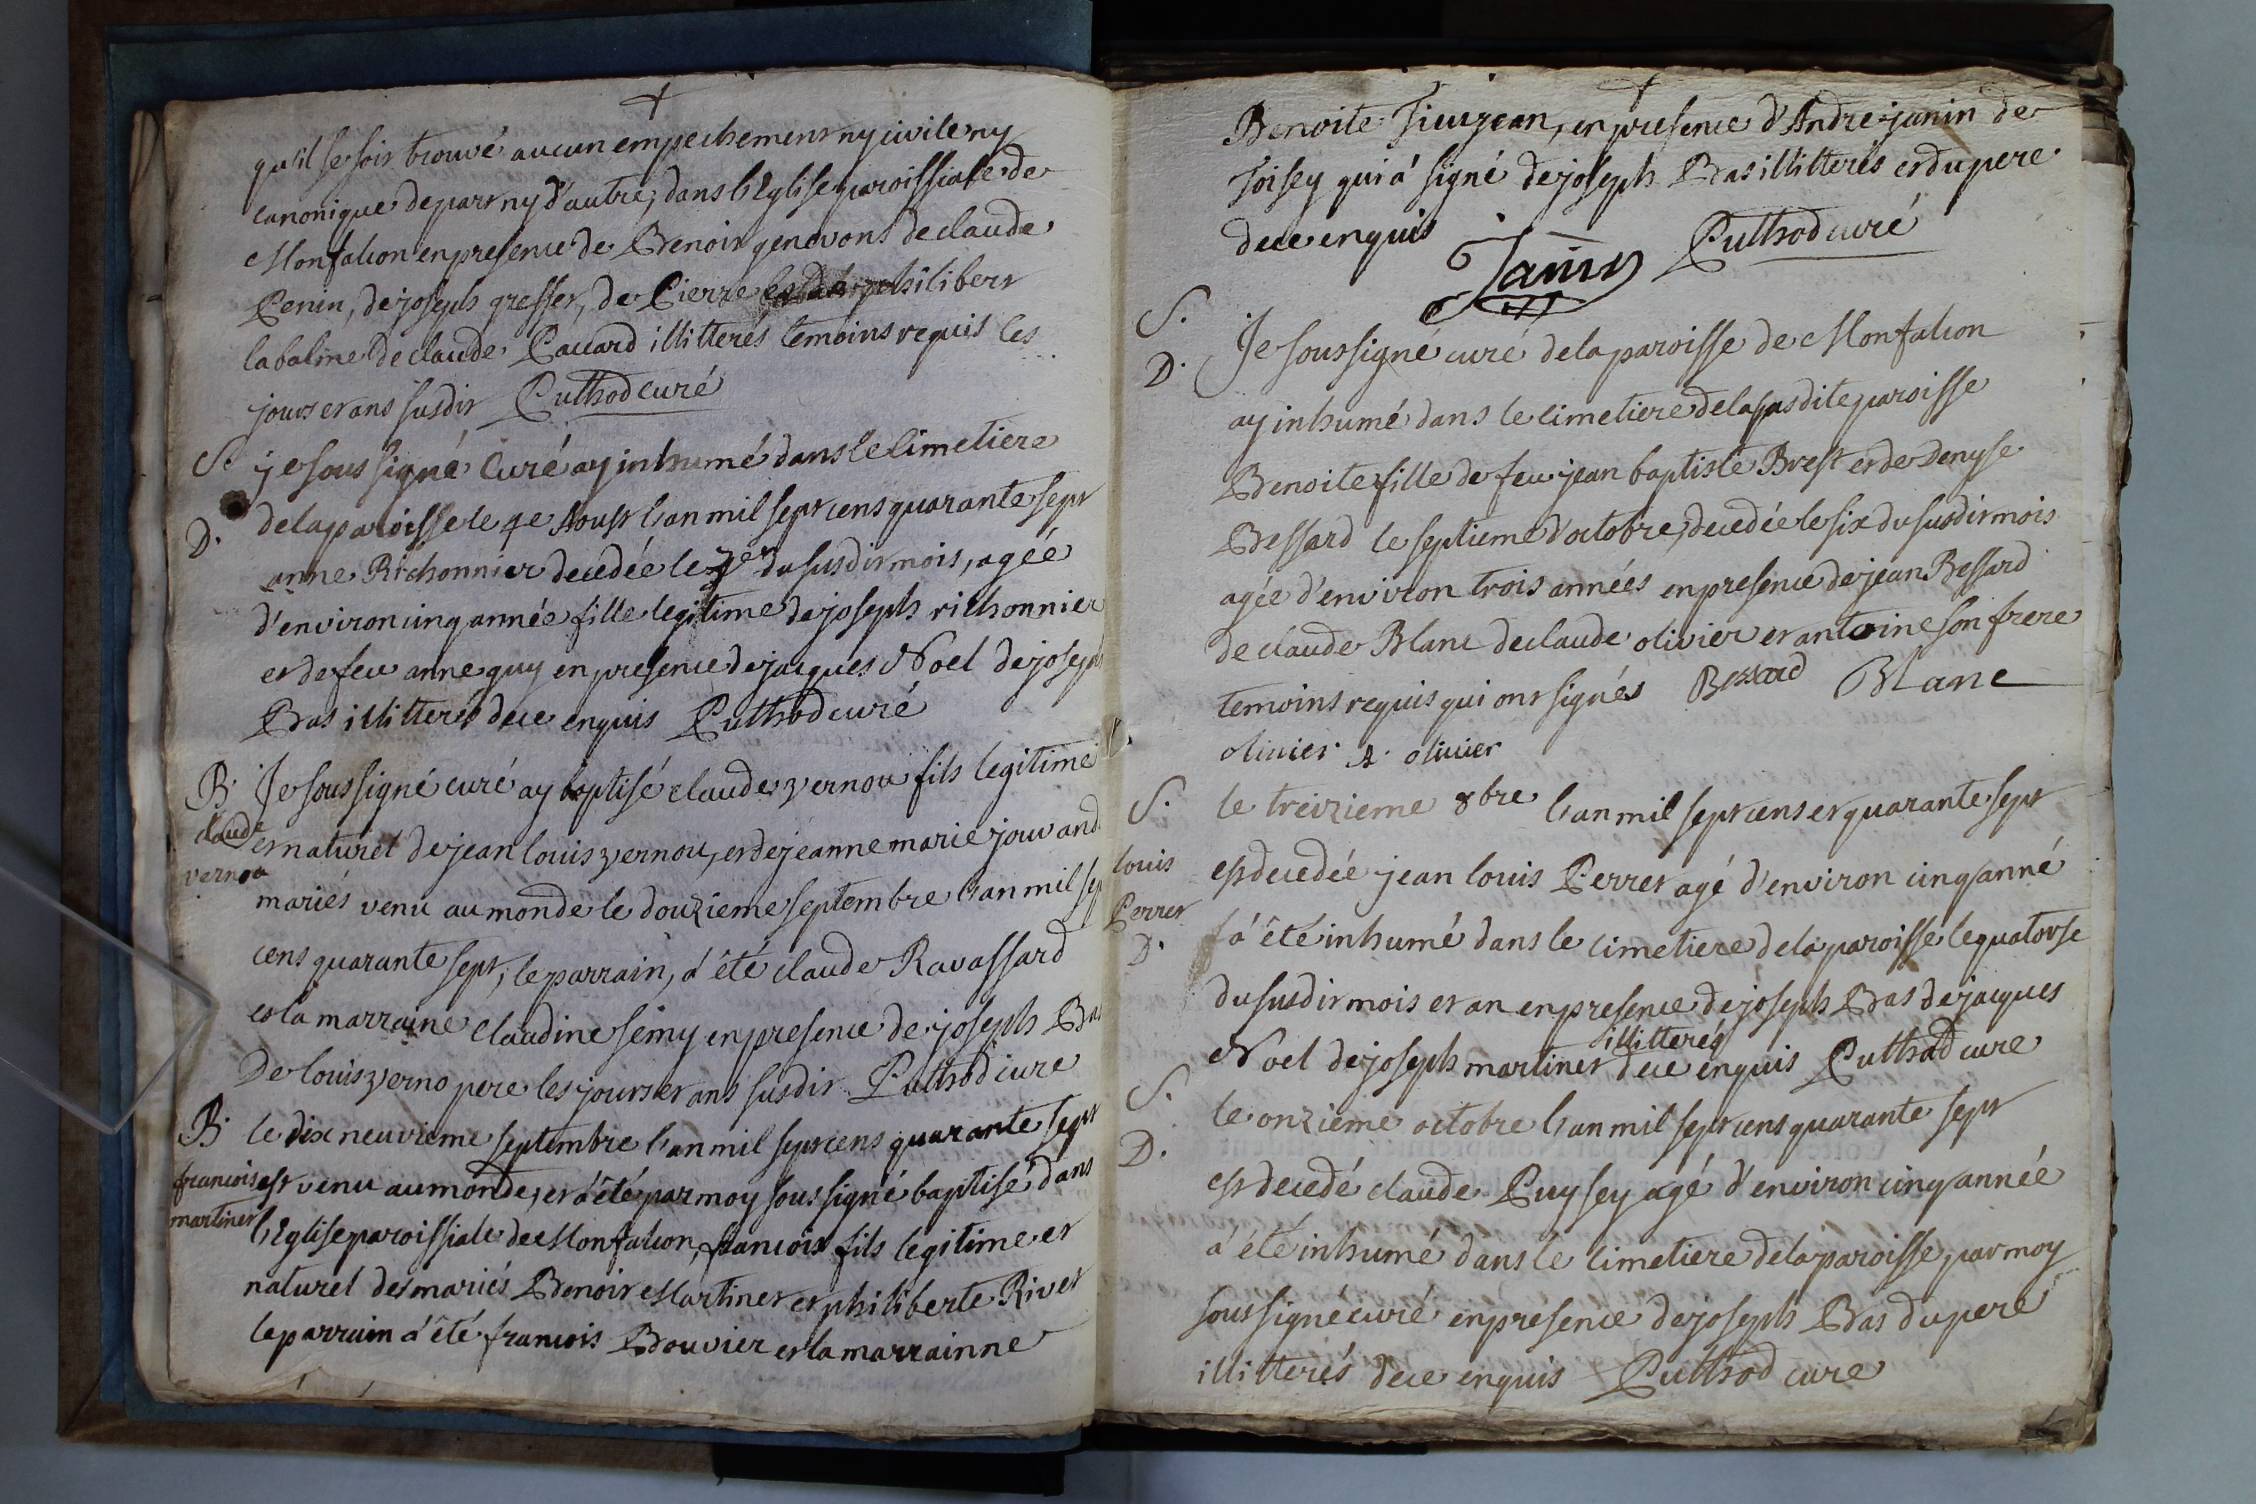 qu'il se soit trouvé aucun empechement ny civile ny
canonique de part ny d'autre, dans l'Eglise paroissiale de
Monfalcon en presence de Benoit genevons de claude
Penin, de joseph gresset, de Pierre philibert
labalme de claude Pauard illitterés temoins requis les
jours et ans susdit Puthod Curé
S. je sous signé Curé ay inhumé dans le Cimetiere
D. de la paroisse le 4e Aoust l'an mil sept cens quarante sept
anne Richonnier decedée le 3e du susdit mois, agée
d'environ cinq année fille legitime de joseph richonnier
et de feu anne guy en presence de jacques Noel de joseph
Bas illitterés de ce enquis Puthod curé
B. Je sous signé curé ay baptisé claude vernou fils legitime
claude
et naturel de jean louis vernou, et de jeanne marie jouvand
vernou
mariés venu au monde le douzieme septembre l'an mil sep
cens quarante sept, le parrain, a' été claude Ravassard
et la marraine Claudine semy en presence de joseph Bas
De louis verno pere les jours et ans susdit Puthod cure
B. le dix neuvieme septembre l'an mil sept cens quarante sept
francois est venu au monde, et a' été par moy sous signé baptisé dans
martinet l'Eglise paroissiale de Monfalcon, francois fils legitime et
naturel des mariés Benoit Martinet et philiberte Rivet
le parrain a' été francois Bouvier et la marrainne
Benoite Tieujean, en presence d'Andre janin de
Toisey qui a' signé de joseph Bas illitterés et du pere
de ce enquis
Janin Puthod curé
S. Je sous signé curé de la paroisse de Monfalcon
D.
ay inhumé dans le cimetiere de la susdite paroisse
Benoite fille de feu jean baptiste Brest et de Denyse
Bessard le septieme d'octobre, decedée le six du susdit mois
agée d'environ trois années en presence de jean Bessard
de claude Blanc de claude olivier et antoine son frere
temoins requis qui ont signés Bessard Blanc
olivier A. olivier
S. le treizieme 8bre l'an mil sept cens et quarante sept
louis est decedée jean louis Perret agé d'environ cinq anné
Perret
D. a' été inhumé dans le cimetiere de la paroisse le quatorse
du susdit mois et an en presence de joseph Bas de jacques
illitterés
Noel de joseph martinet de ce enquis Puthod cure
S. le onzieme octobre l'an mil sept cens quarante sept
D.
est decedé claude Puysey agé d'environ cinq année
a' été inhumé dans le cimetiere de la paroisse, par moy
sous signé curé en presence de joseph Bas du pere
illitterés de ce enquis Puthod cure